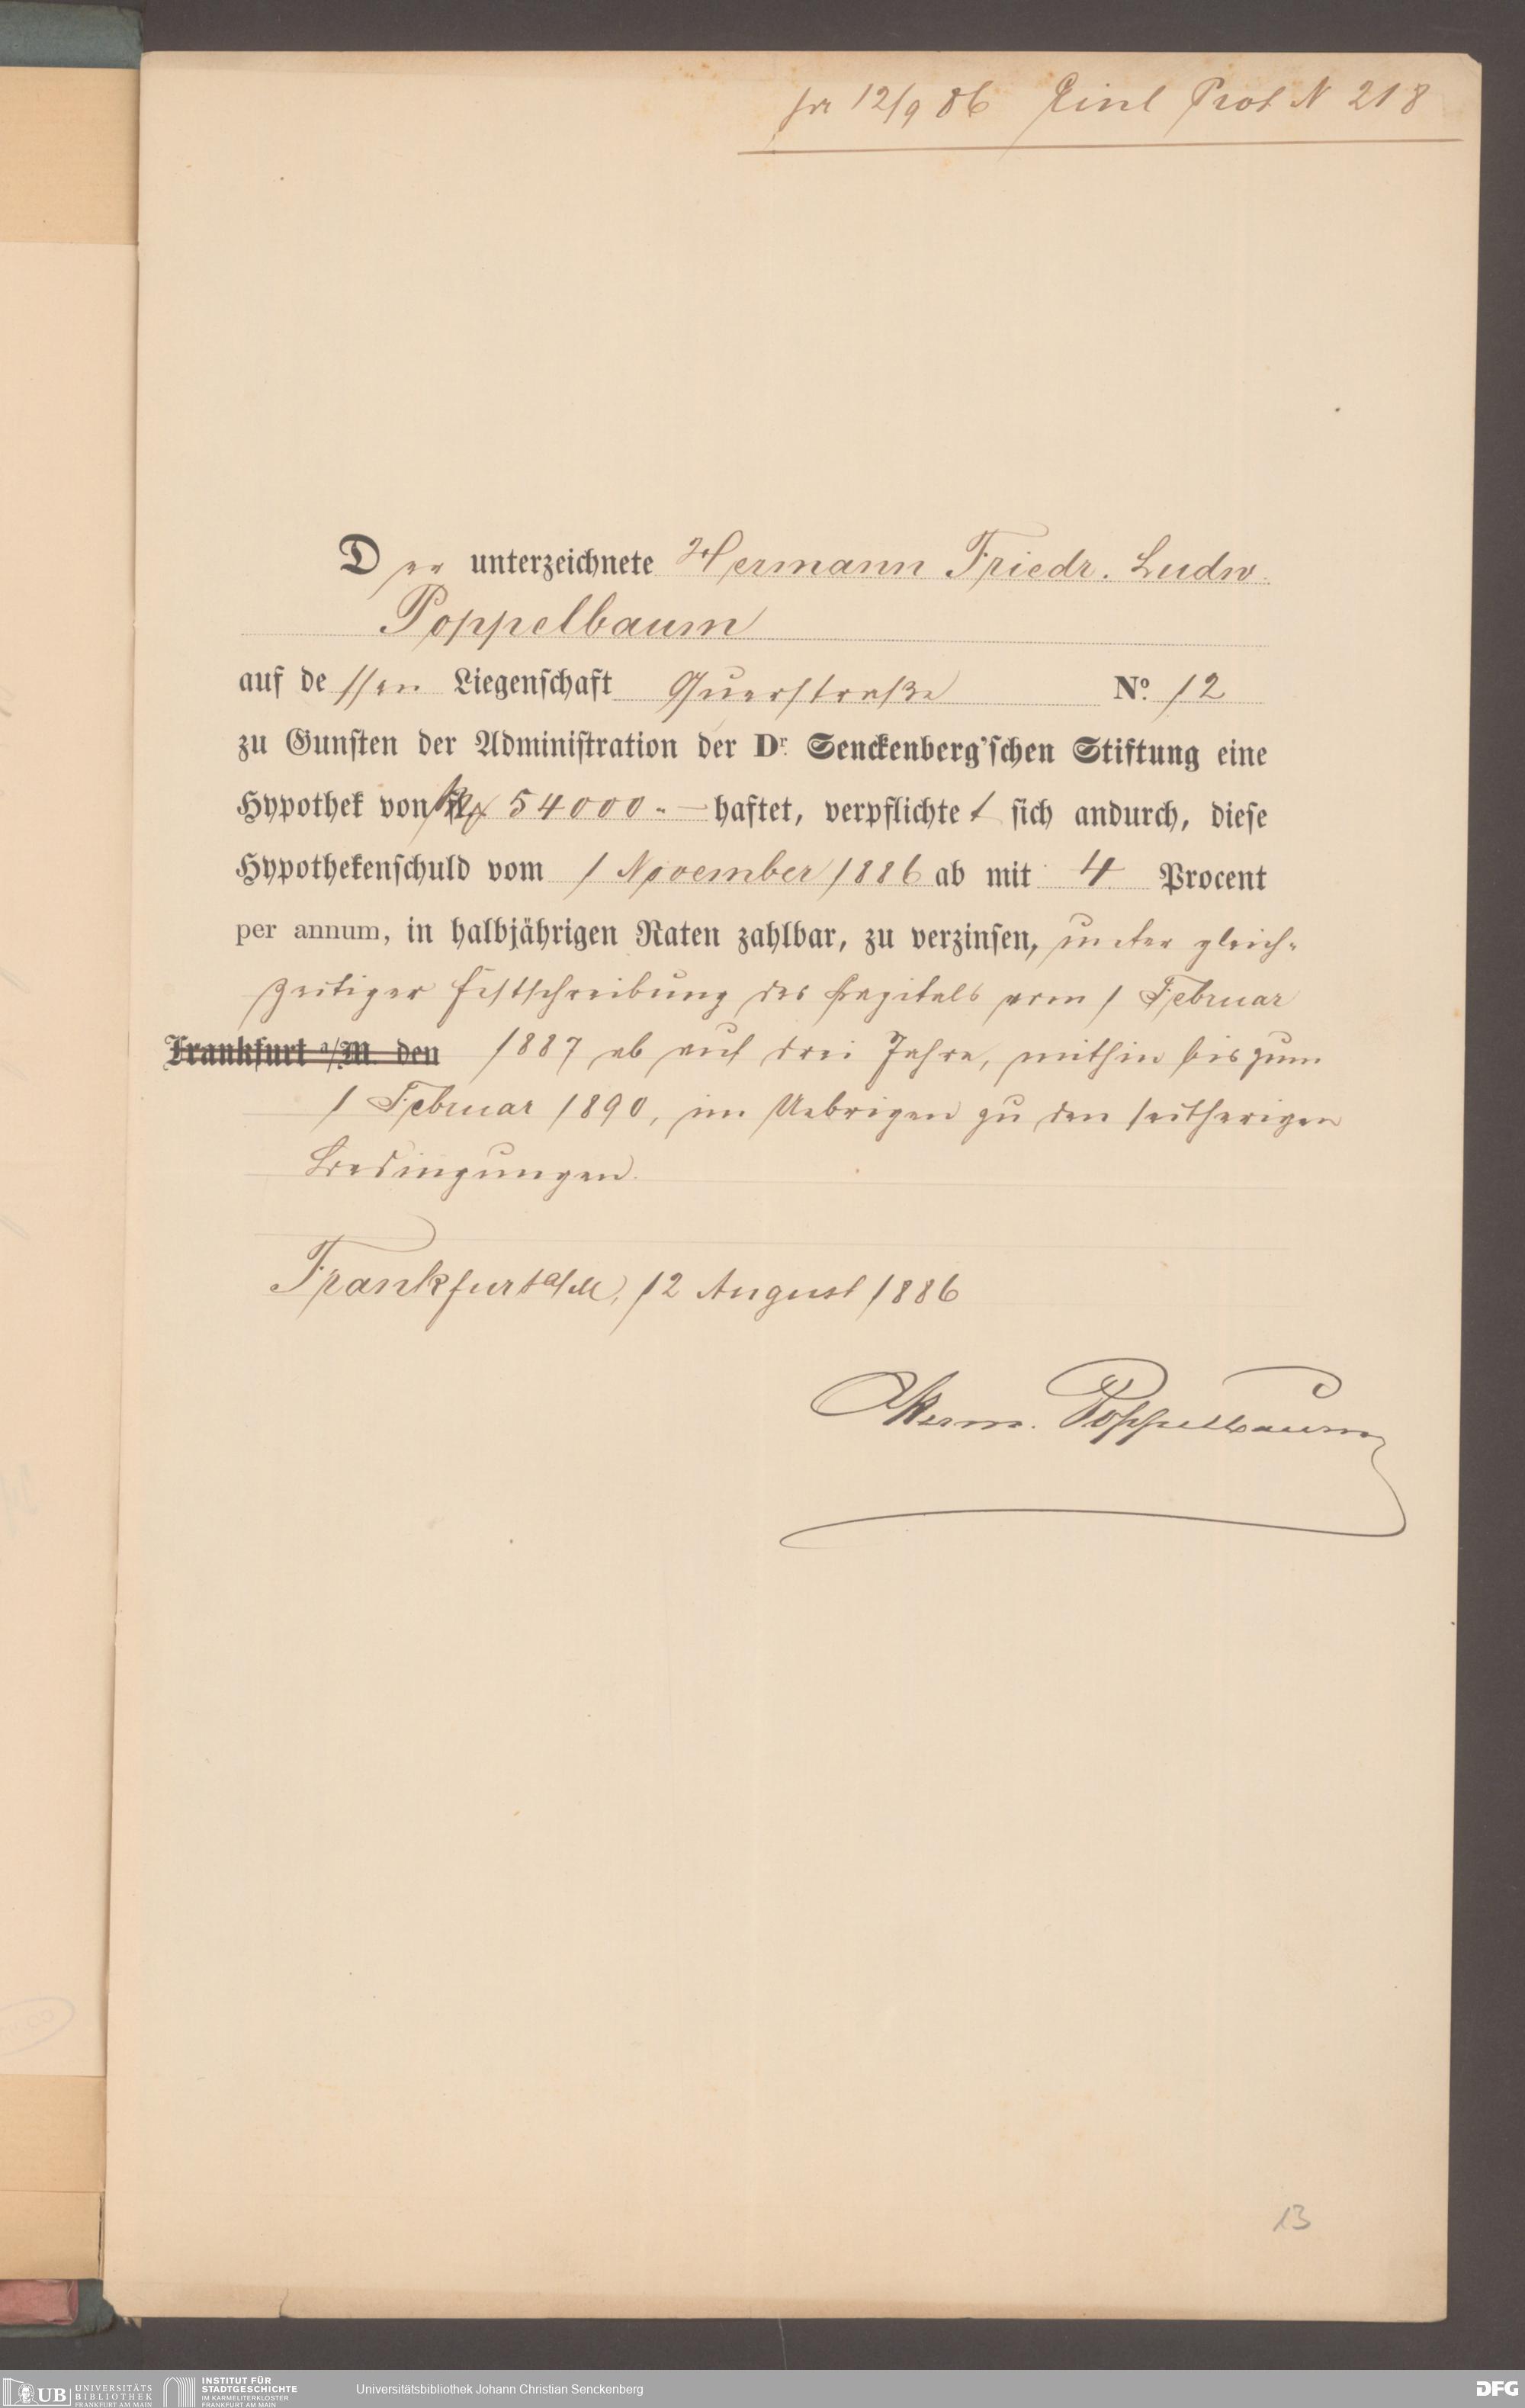 pr 12/9 86 Einl Prot N 218
Der unterzeichnete Hermann Friedr. Ludw.
Poppelbaum
auf dessen Liegenschaft Querstraße No. 12
zu Gunsten der Administration der Dr. Senckenberg'schen Stiftung eine
Hypothek von 54000.— haftet, verpflichtet sich andurch, diese
Hypothekenschuld vom 1 November 1886 ab mit 4 Procent
per annum, in halbjährigen Raten zahlbar, zu verzinsen, unter gleich-
zeitiger Festschreibung des Kapitals vom 1 Februar
Frankfurt a/M. den 1887 ab auf drei Jahre, mithin bis zum
1 Februar 1890, im Uebrigen zu den seitherigen
Bedingungen.
Frankfurt a/M, 12 August 1886
Herm. Poppelbaum
13
UB UNIVERSITÄTS BIBLIOTHEK FRANKFURT AM MAIN
INSTITUT FÜR STADTGESCHICHTE IM KARMELITERKLOSTER FRANKFURT AM MAIN
Universitätsbibliothek Johann Christian Senckenberg
DFG